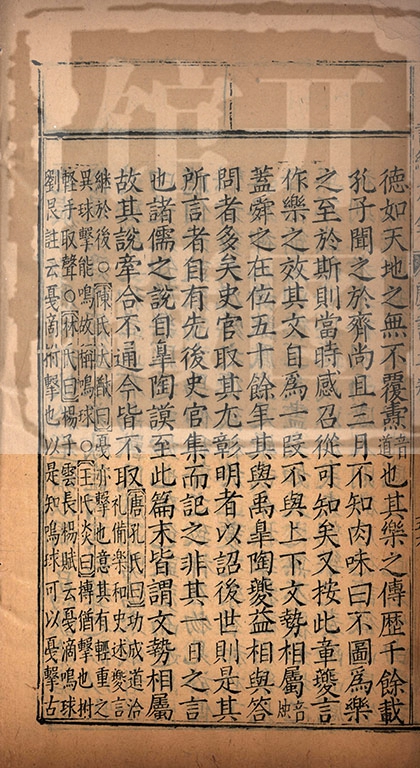 德如天地之無不覆燾音道也其樂之傳歷千餘載
孔子聞之於齊尚且三月不知肉味曰不圖爲樂
之至於斯則當時感召從可知矣又按此章夔言
作樂之效其文自爲一段不與上下文勢相屬音燭
蓋舜之在位五十餘年其與禹皐陶夔益相與答
問者多矣史官取其尤彰明者以詔後世則是其
所言者自有先後史官集而記之非其一日之言
也諸儒之說自皐陶謨至此篇末皆謂文勢相屬
故其說牽合不通今皆不取唐孔氏曰功成道洽
禮備樂和史述夔言
繼於後○陳氏大猷曰戛亦擊也意其有輕重之
異球擊能鳴故稱鳴球○王氏炎曰搏猶擊也拊
輕手取聲○林氏曰楊子雲長楊賦云戛滴鳴球
劉良註云戛滴拊擊也以是知鳴球可以戛擊古